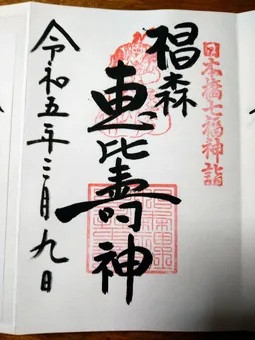 日本橋七福神詣
椙森
恵比壽神
令和五年二月九日